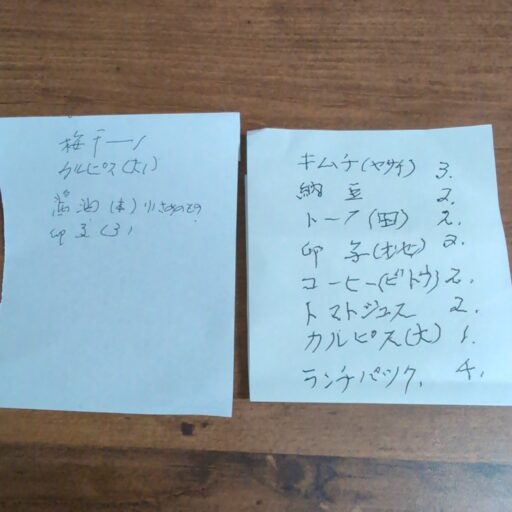 梅干 1
カルピス(大)
油(本)小さめの
卵 豆(3)
キムチ(ヤサイ) 3.
納豆 2.
トーフ(田) 2.
卵子 2.
コーヒー(ビトウ) 2.
トマトジュース 2.
カルピス(大) 1.
ランチパック. 4.